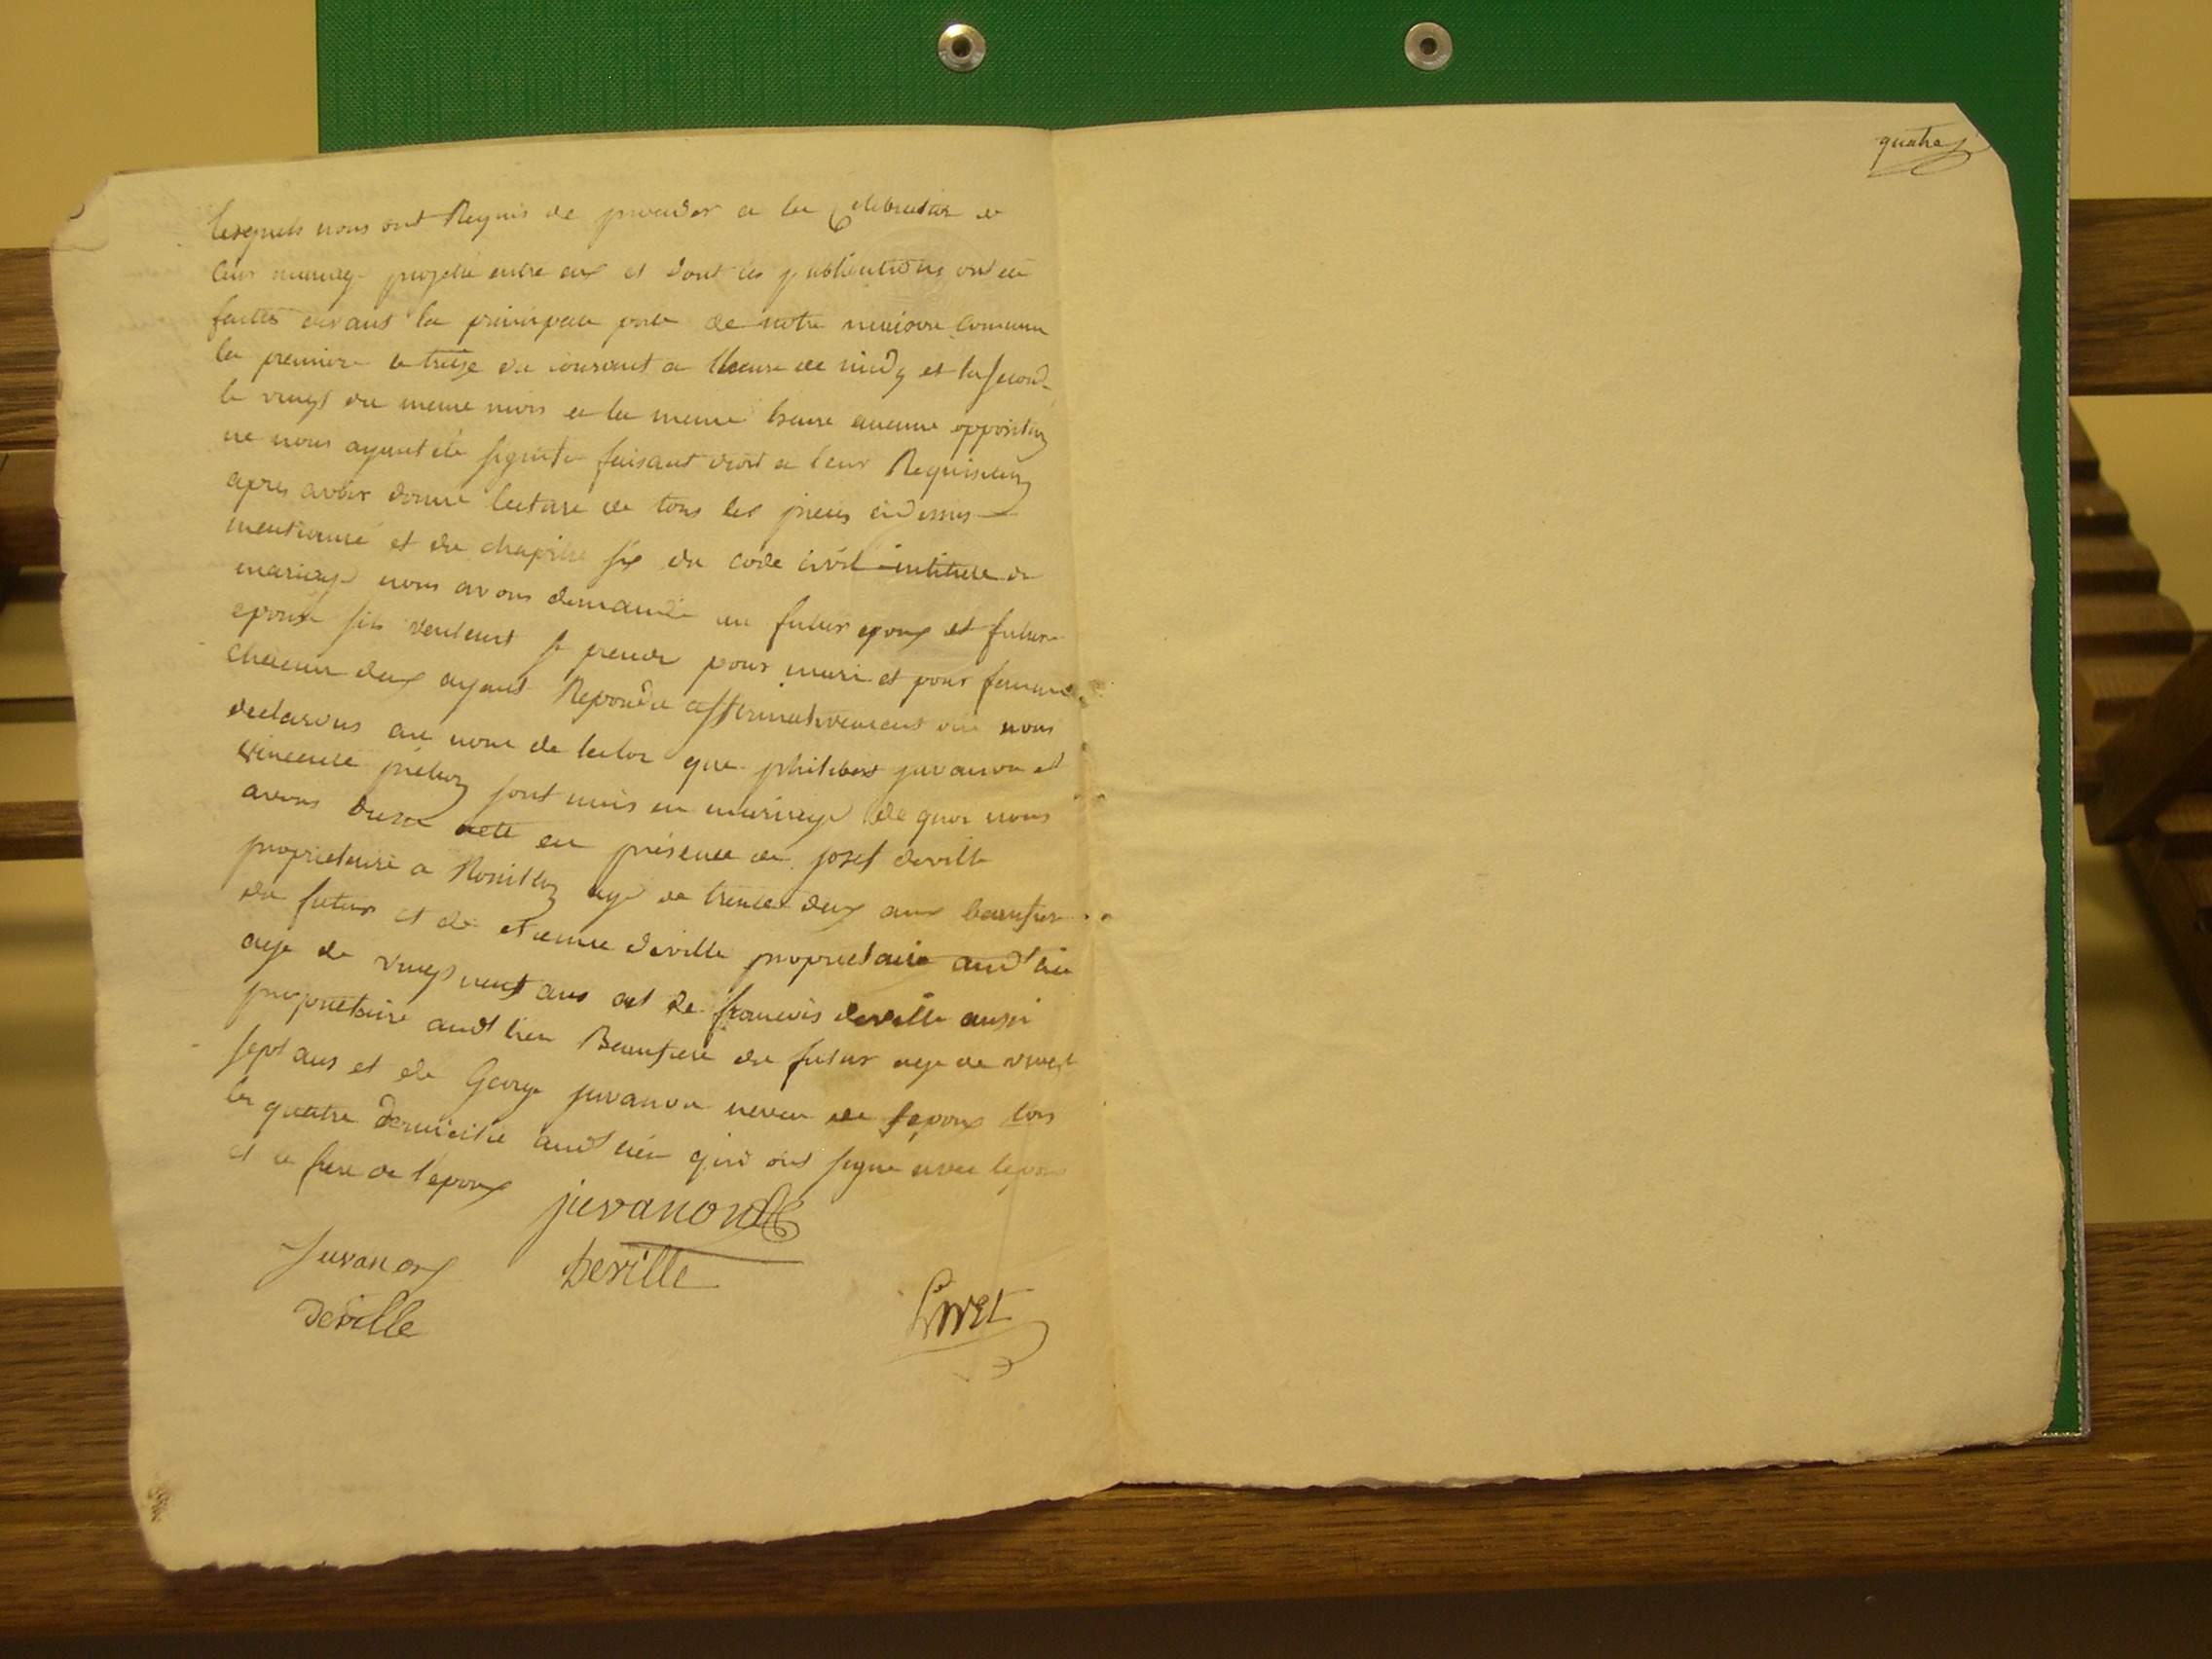 lesquels nous ont Requis de proceder a la Celebration de
leur mariage projetté entre eux et dont les publications ont été
faites devant la principale porte de notre maison comune
la premiere le treize du courant a lheure de midy et la seconde
le vingt du meme mois a la meme heure aucune opposition
ne nous ayant été signifié faisant droit a leur Requisition
apres avoir donné lecture de tous les pieces cidessus
mentionné et du chapitre six du code civil intitulé du
mariage nous avons demandé au futur epoux et future
epouse sils veulent se prendre pour mari et pour femme
chacun deux ayant Repondu affirmativement oui nous
declarons au nom de la loi que philibert juvanon et
sont unis en mariage de quoi nous
avons dressé acte en presence de josef deville
proprietaire a Rossillon agé de trente deux ans beaufrere
du futur et de etienne deville proprietaire audt lieu
age de vingt neuf ans et de francois deville aussi
proprietaire audt lieu Beaufrere du futur age de vingt
sept ans et de George juvanon neveu de lepoux tous
les quatre domicilié audt lieu qui ont signe avec lepoux
et le frere de l'epoux
juvanon
Juvanon
Deville
deville
Livet
quatre